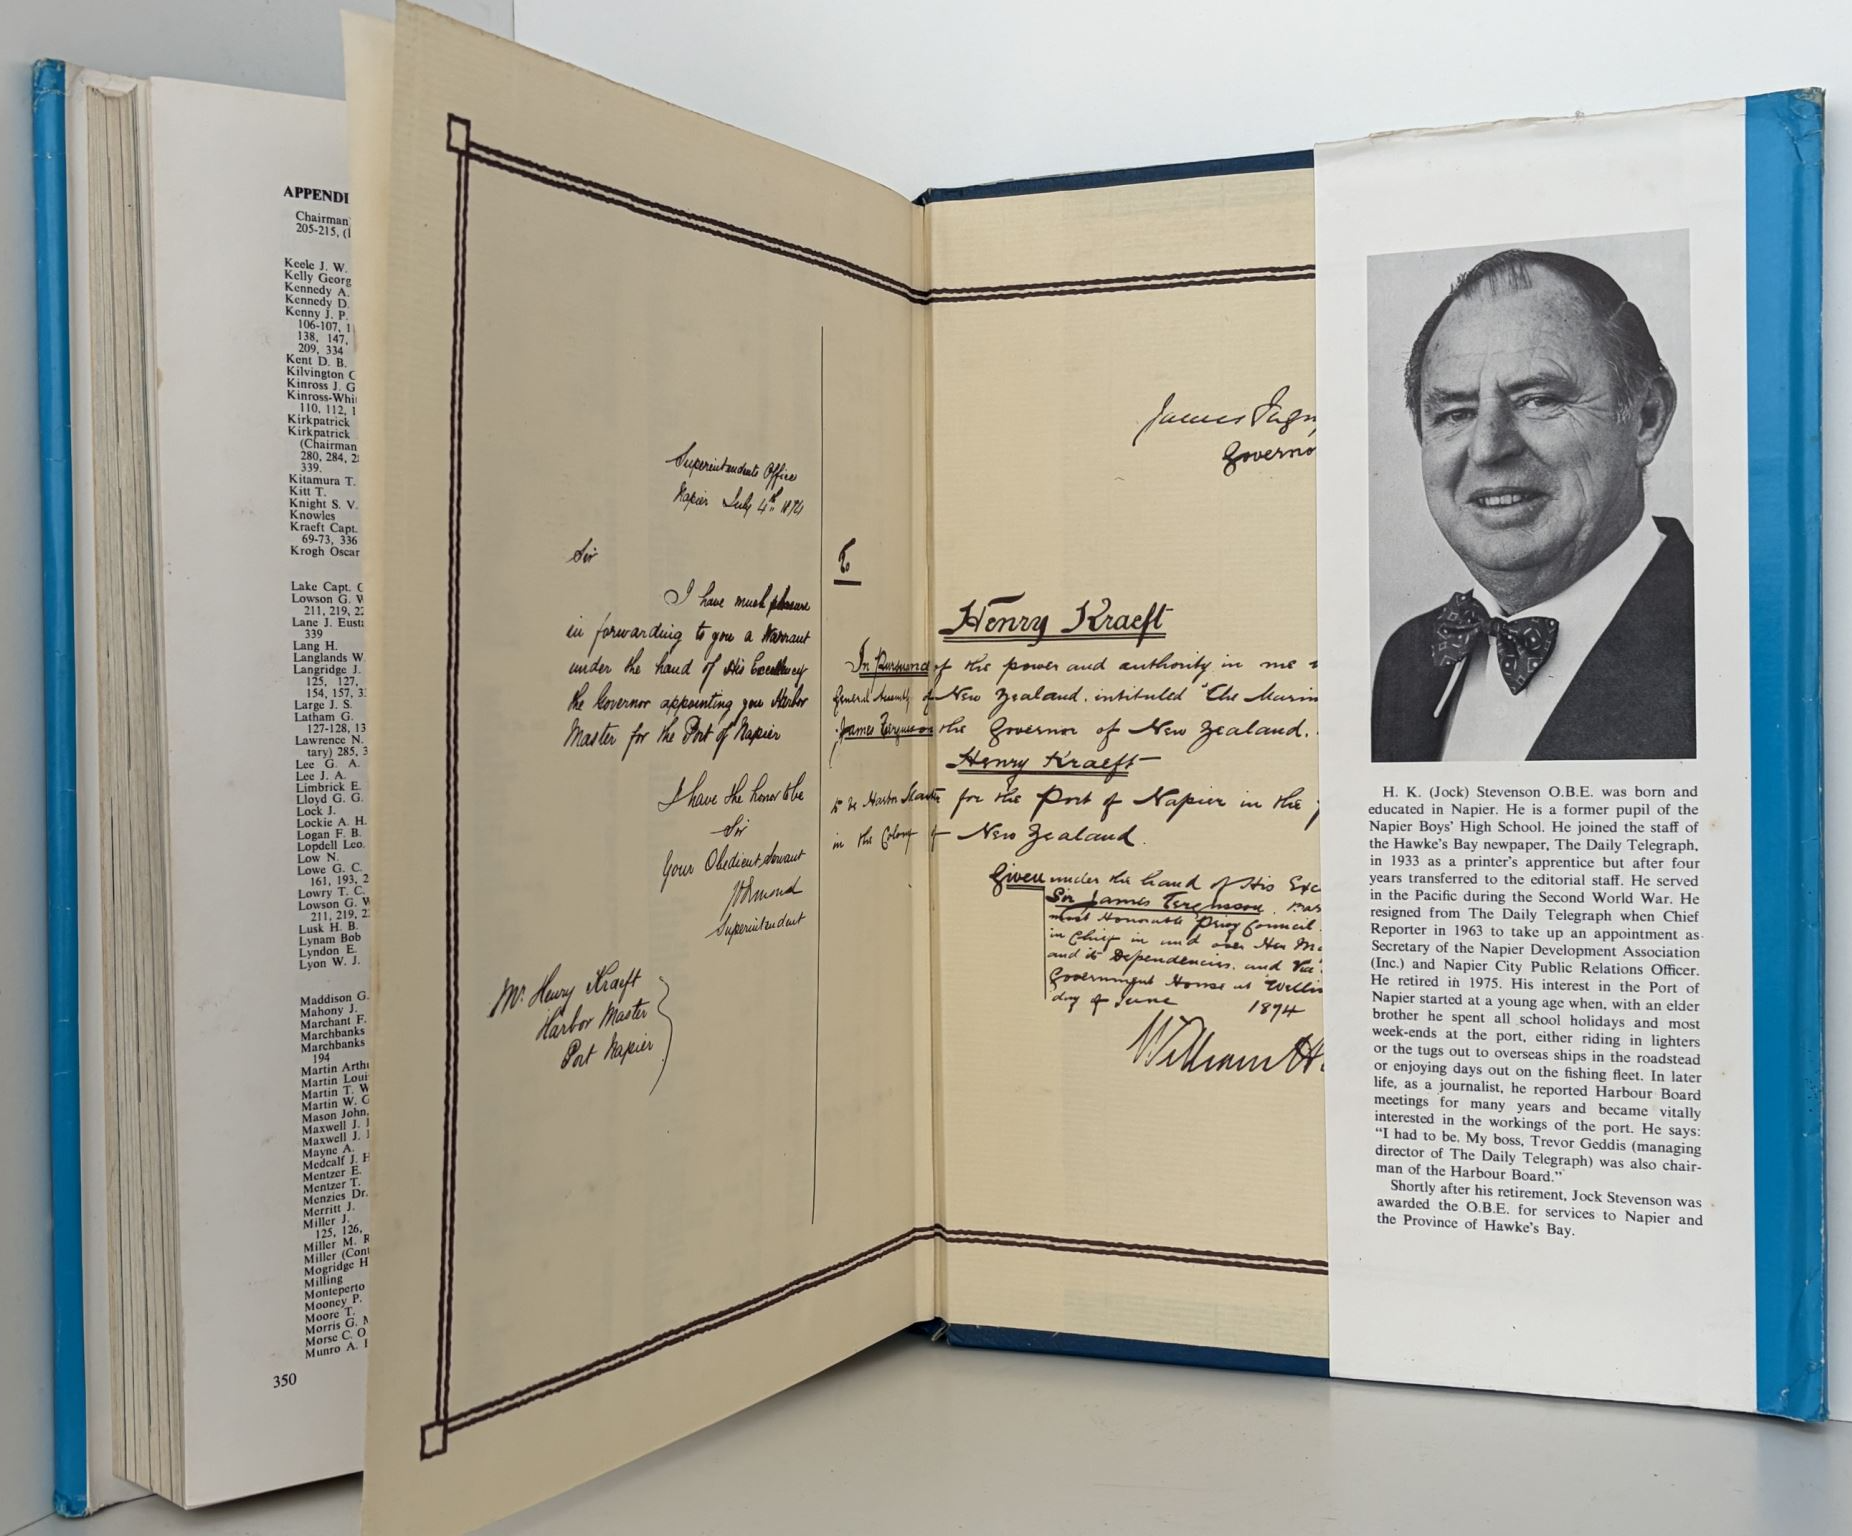 APPENDI
Chairman
205-215, (1
Keele J. W.
Kelly Georg
Kennedy A.
Kennedy D.
Kenny J. P.
106-107, 1
138, 147,
209, 334
Kent D. B.
Kilvington C
Kinross J. G
Kinross-Whi
110, 112, 1
Kirkpatrick
Kirkpatrick
(Chairman
280, 284, 2
339.
Kitamura T.
Kitt T.
Knight S. V.
Knowles
Kraeft Capt.
69-73, 336
Krogh Oscar
Lake Capt. G
Lowson G. W
211, 219, 22
Lane J. Eusta
339
Lang H.
Langlands W.
Langridge J.
125, 127,
154, 157, 3
Large J. S.
Latham G.
127-128, 13
Lawrence N.
tary) 285, 3
Lee G. A.
Lee J. A.
Limbrick E.
Lloyd G. G.
Lock J.
Lockie A. H.
Logan F. B.
Lopdell Leo.
Low N.
Lowe G. C.
161, 193, 2
Lowry T. C.
Lowson G. W
211, 219, 2
Lusk H. B.
Lynam Bob
Lyndon E.
Lyon W. J.
Maddison G.
Mahony J.
Marchant F.
Marchbanks
Marchbanks
194
Martin Arthu
Martin Loui
Martin T. W
Martin W. G
Mason John,
Maxwell J. I
Maxwell J. J
Mayne A.
Medcalf J. H
Mentzer E.
Mentzer T.
Menzies Dr.
Merritt J.
Miller J.
125, 126,
Miller M. R
Miller (Cont
Mogridge H
Milling
Monteperto
Mooney P.
Moore T.
Morris G. M
Morse C. O
Munro A. I
350
Superintendents Office
Napier July 4th 1874
Sir
I have much pleasure
in forwarding to you a Warrant
under the hand of His Excellency
the Governor appointing you Harbor
Master for the Port of Napier
I have the honor to be
Sir
Your Obedient Servant
JD Ormond
Superintendent
Mr. Henry Kraeft
Harbor Master
Port Napier
James Ferg
Governo
To
Henry Kraeft
In Pursuance of the power and authority in me
General Assembly of New Zealand. intituled "The Marin
James Fergusson the Governor of New Zealand.
Henry Kraeft
to be Harbor Master for the Port of Napier in the
in the Colony of New Zealand.
Given under the hand of His Exc
Sir James Fergusson.
most Honourable Privy Council
in Chief in and over Her Ma
and its Dependencies, and Vice
Government House at Wellin
day of June 1874
William H
H. K. (Jock) Stevenson O.B.E. was born and
educated in Napier. He is a former pupil of the
Napier Boys' High School. He joined the staff of
the Hawke's Bay newpaper, The Daily Telegraph,
in 1933 as a printer's apprentice but after four
years transferred to the editorial staff. He served
in the Pacific during the Second World War. He
resigned from The Daily Telegraph when Chief
Reporter in 1963 to take up an appointment as
Secretary of the Napier Development Association
(Inc.) and Napier City Public Relations Officer.
He retired in 1975. His interest in the Port of
Napier started at a young age when, with an elder
brother he spent all school holidays and most
week-ends at the port, either riding in lighters
or the tugs out to overseas ships in the roadstead
or enjoying days out on the fishing fleet. In later
life, as a journalist, he reported Harbour Board
meetings for many years and became vitally
interested in the workings of the port. He says:
"I had to be. My boss, Trevor Geddis (managing
director of The Daily Telegraph) was also chair-
man of the Harbour Board."
Shortly after his retirement, Jock Stevenson was
awarded the O.B.E. for services to Napier and
the Province of Hawke's Bay.